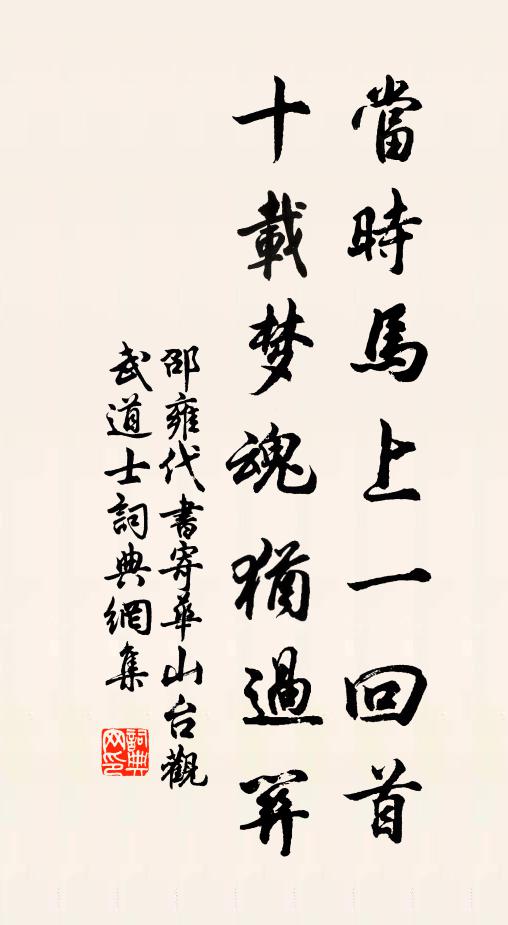 當時馬上一回首
十載梦魂猶過羿
邵雍代書寄華山台觀
武道士詞典網集
詞典网印